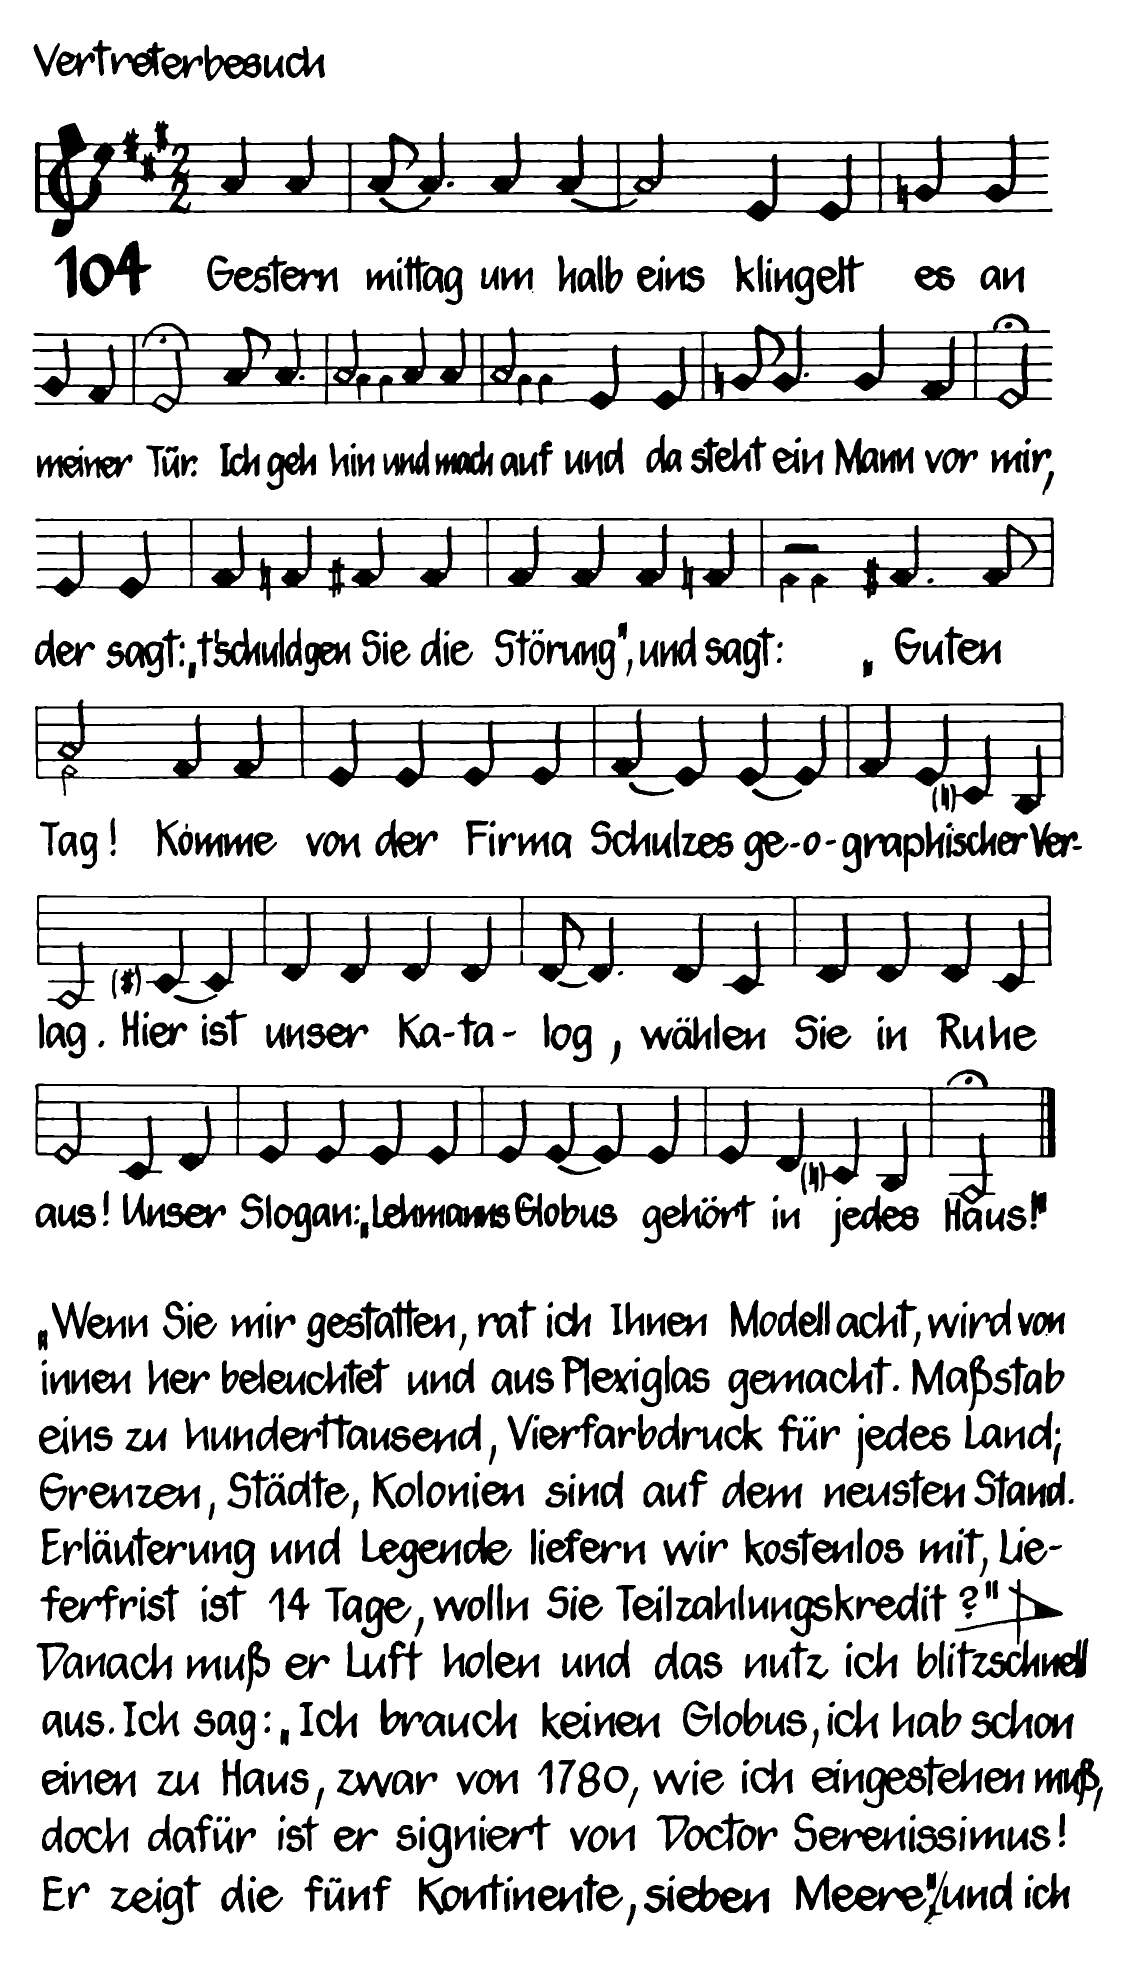 Vertreterbesuch
2
2
104 Gestern mittag um halb eins klingelt es an
meiner Tür. Ich geh hin und mach auf und da steht ein Mann vor mir,
der sagt: „t'schuldgen Sie die Störung", und sagt: „Guten
Tag! Komme von der Firma Schulzes ge-o-graphischer Ver-
lag. Hier ist unser Ka-ta-log, wählen Sie in Ruhe
aus! Unser Slogan: „Lehmanns Globus gehört in jedes Haus!"
„Wenn Sie mir gestatten, rat ich Ihnen Modell acht, wird von
innen her beleuchtet und aus Plexiglas gemacht. Maßstab
eins zu hunderttausend, Vierfarbdruck für jedes Land;
Grenzen, Städte, Kolonien sind auf dem neusten Stand.
Erläuterung und Legende liefern wir kostenlos mit, Lie-
ferfrist ist 14 Tage, wolln Sie Teilzahlungskredit?"
Danach muß er Luft holen und das nutz ich blitzschnell
aus. Ich sag: „Ich brauch keinen Globus, ich hab schon
einen zu Haus, zwar von 1780, wie ich eingestehen muß,
doch dafür ist er signiert von Doctor Serenissimus!
Er zeigt die fünf Kontinente, sieben Meere", und ich